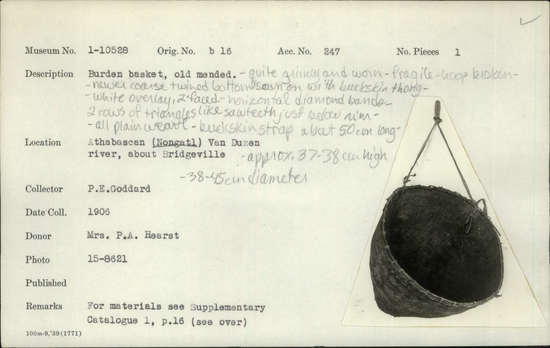 Museum No. 1-10528 Orig. No. b 16 Acc. No. 247 No. Pieces 1
Description Burden basket, old mended. - quite grimy and worn - fragile - hoop broken -
- newer coarse twined bottom sewn on with buckskin thong -
- white overlay, 2-faced - horizontal diamond bands -
2 rows of triangles like sawteeth just below rim -
- all plain weave - buckskin strap about 50 cm long -
Location Athabascan (Nongatl) Van Duzen
river, about Bridgeville
- approx. 37-38 cm high
- 38-45 cm diameter
Collector P.E.Goddard
Date Coll. 1906
Donor Mrs. P.A. Hearst
Photo 15-8621
Published
Remarks For materials see Supplementary
Catalogue 1, p.16 (see over)
100m-9,'39(1771)